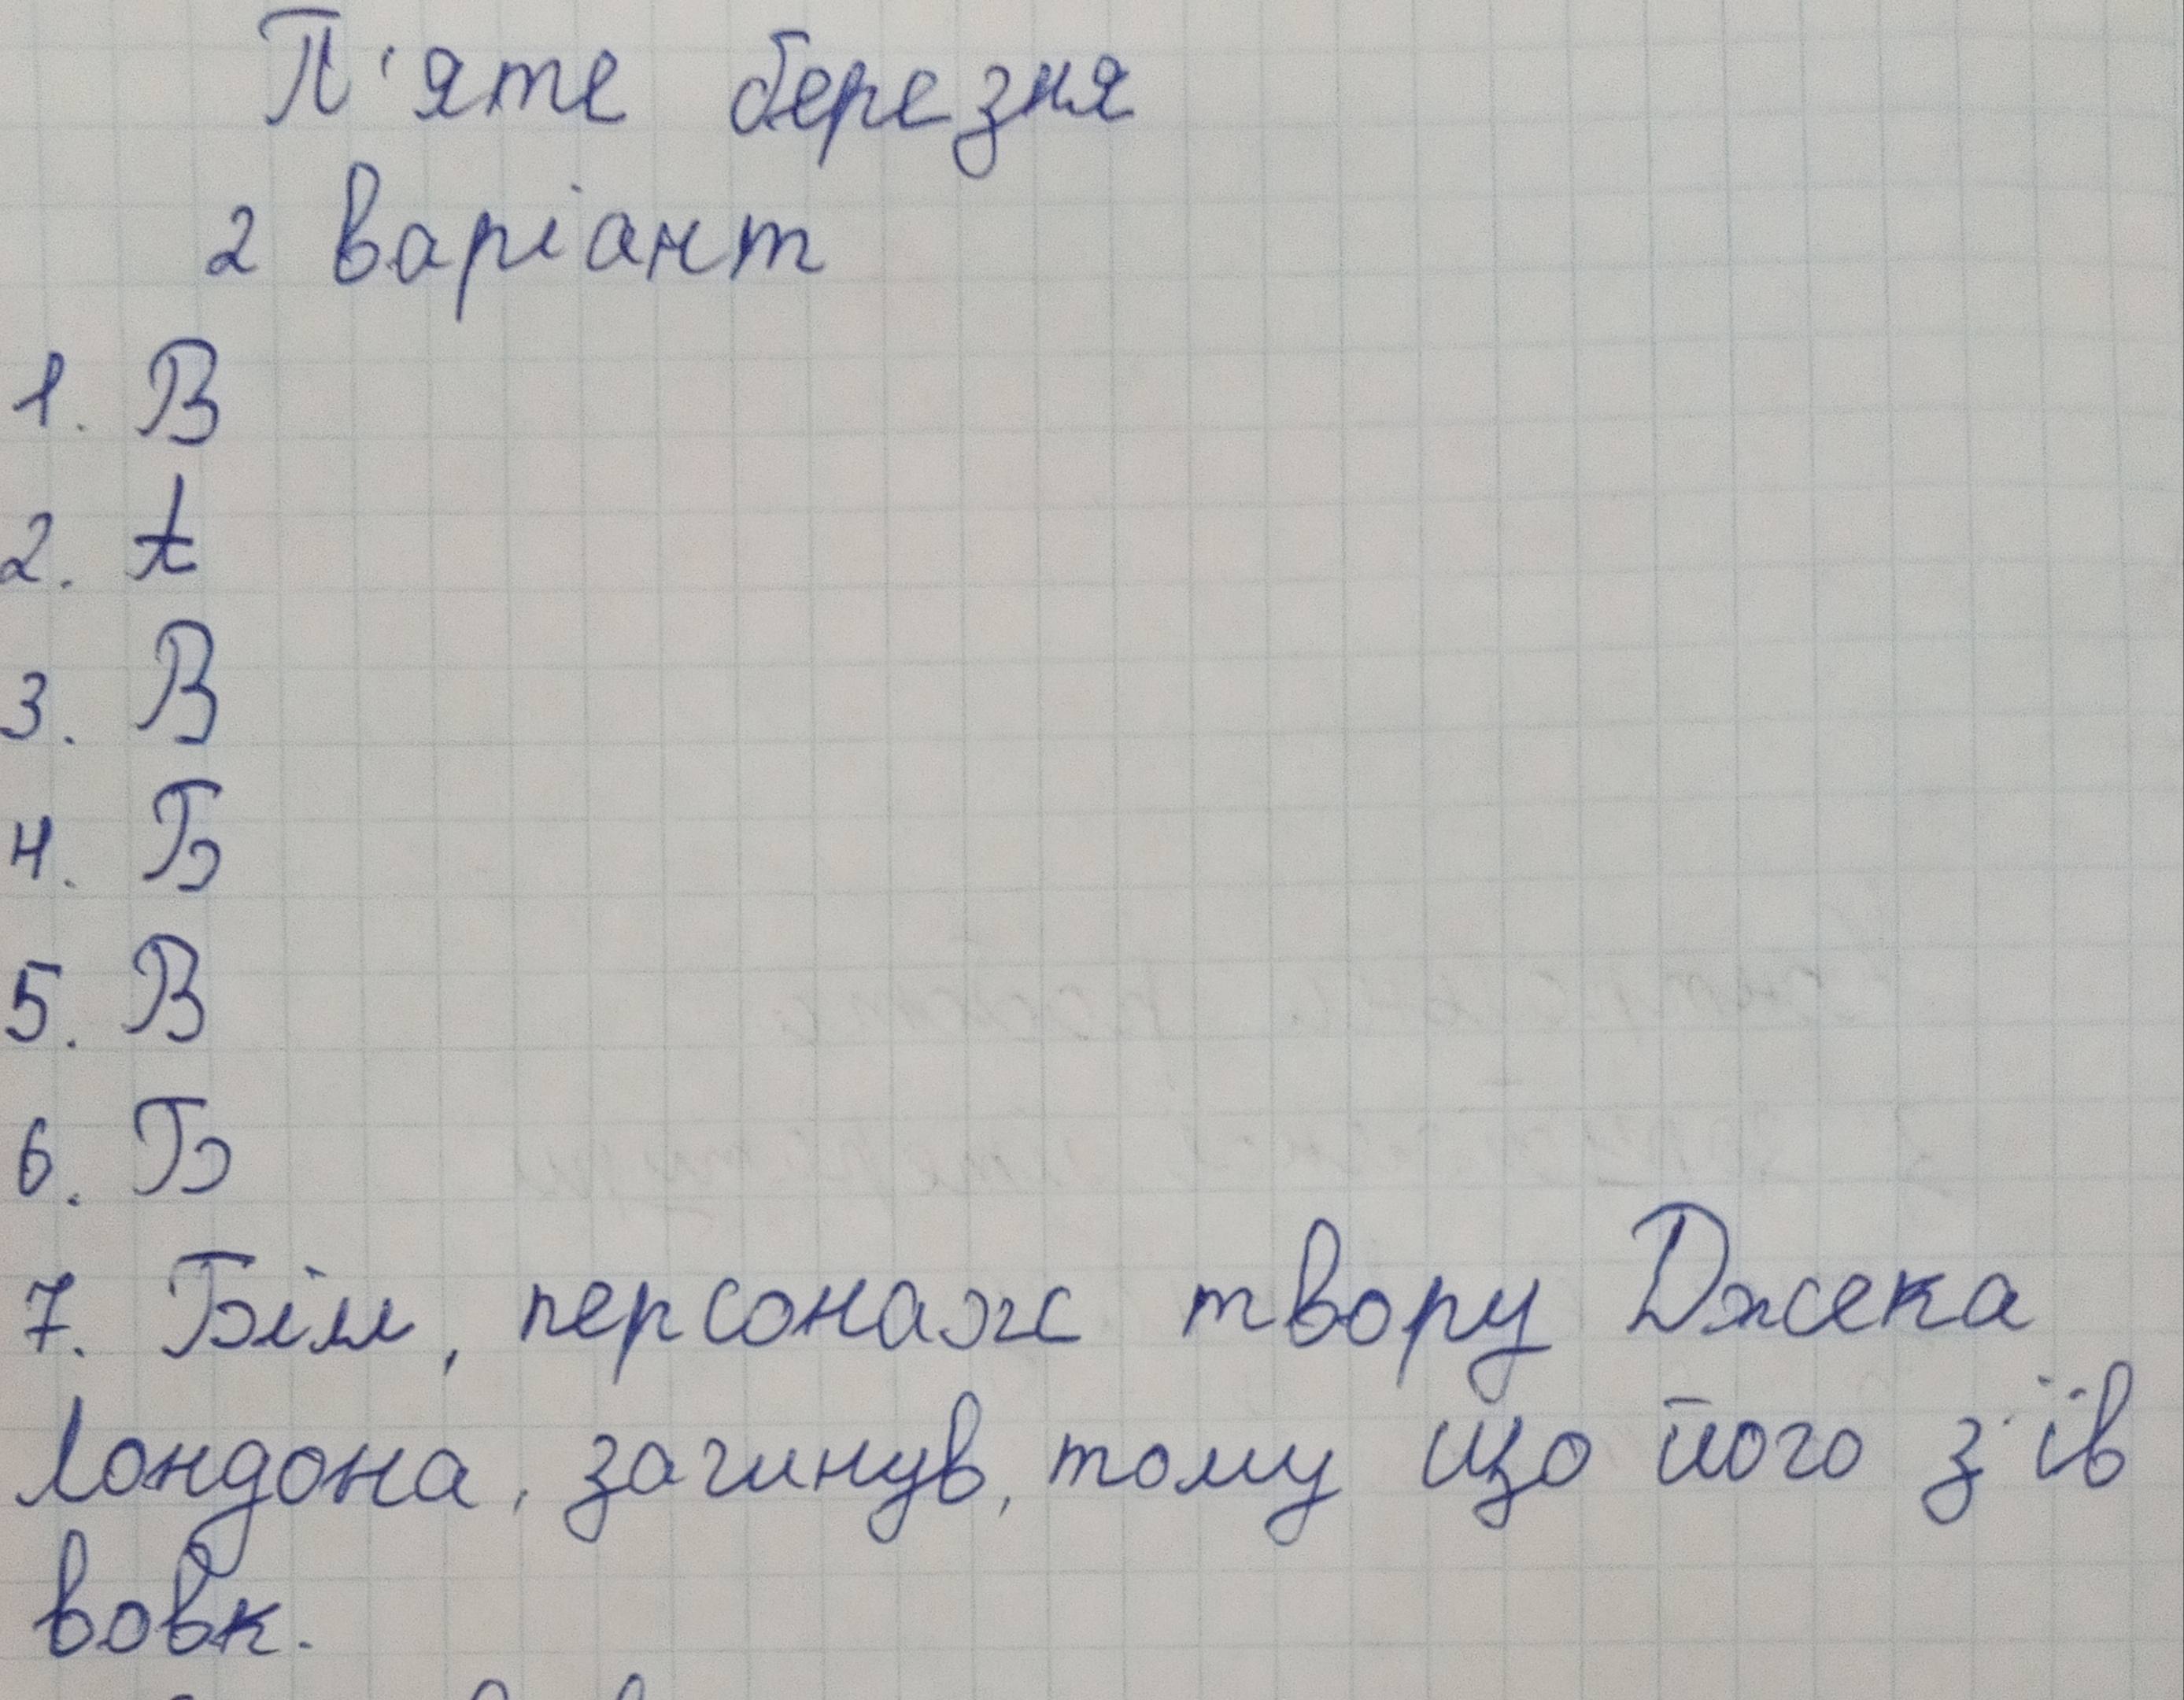 П'яте березня
2 варіант
1. В
2. А
3. В
4. Б
5. В
6. Б
7. Біл, персонаж твору Джека
Лондона, загинув, тому що його з'їв
вовк.